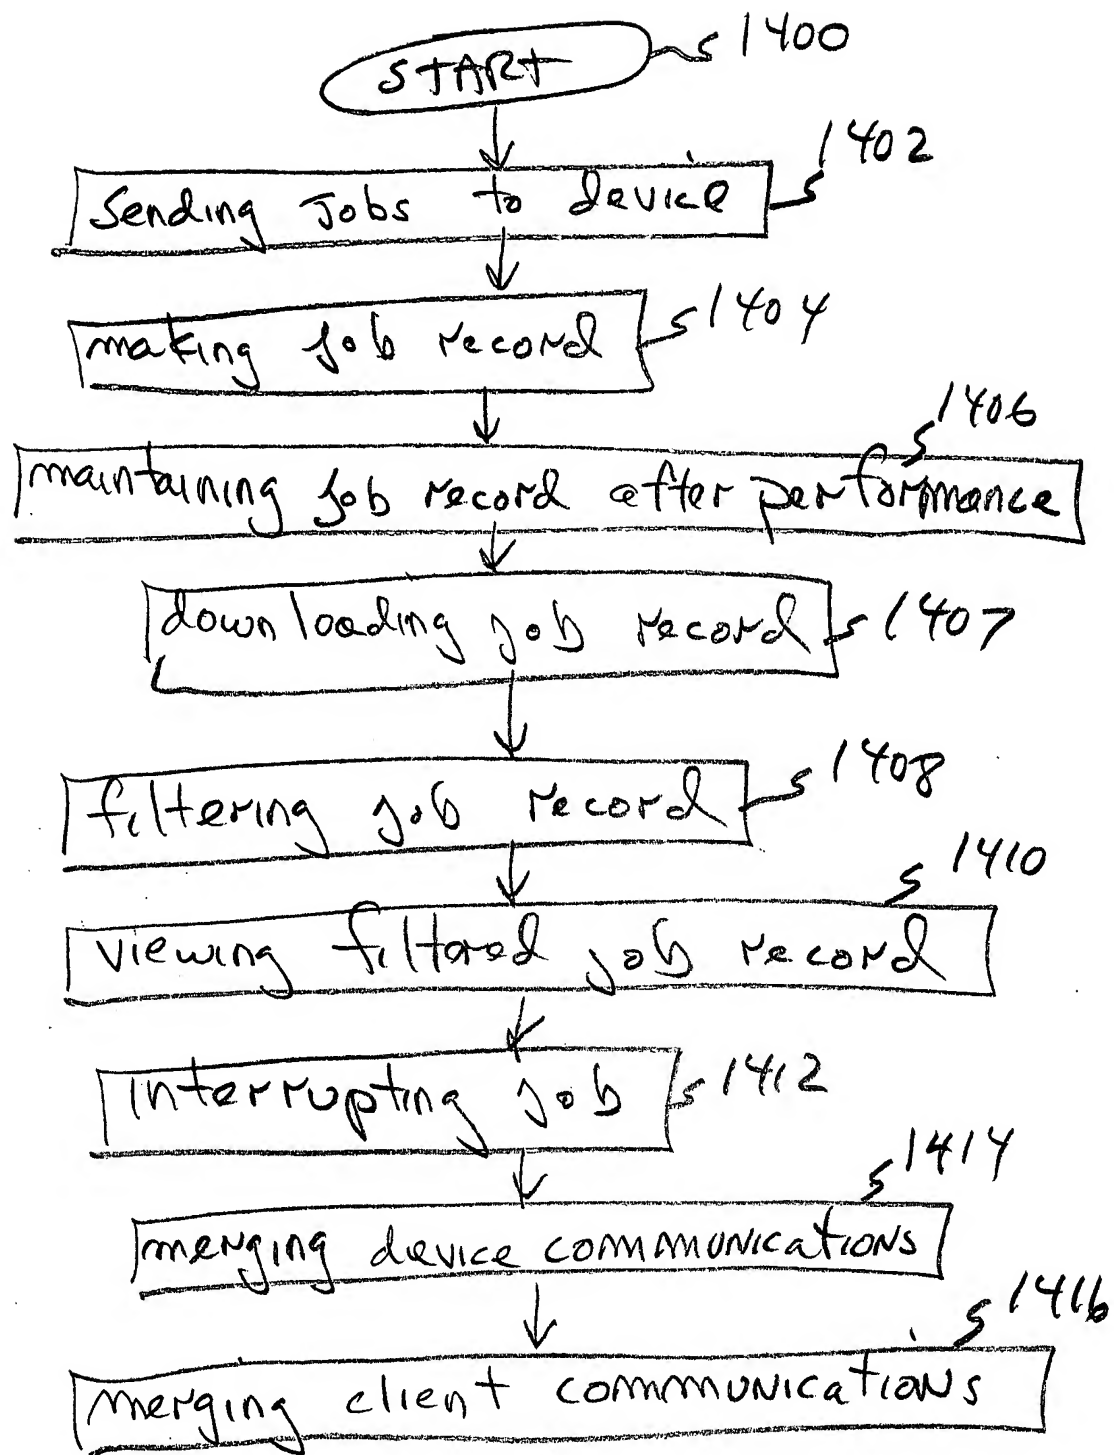 START 1400
1402
Sending Jobs to device
making job record 1404
1406
maintaining job record after performance
downloading job record 1407
filtering job record 1408
1410
viewing filtered job record
interrupting job 1412
1414
merging device communications
1416
merging client communications